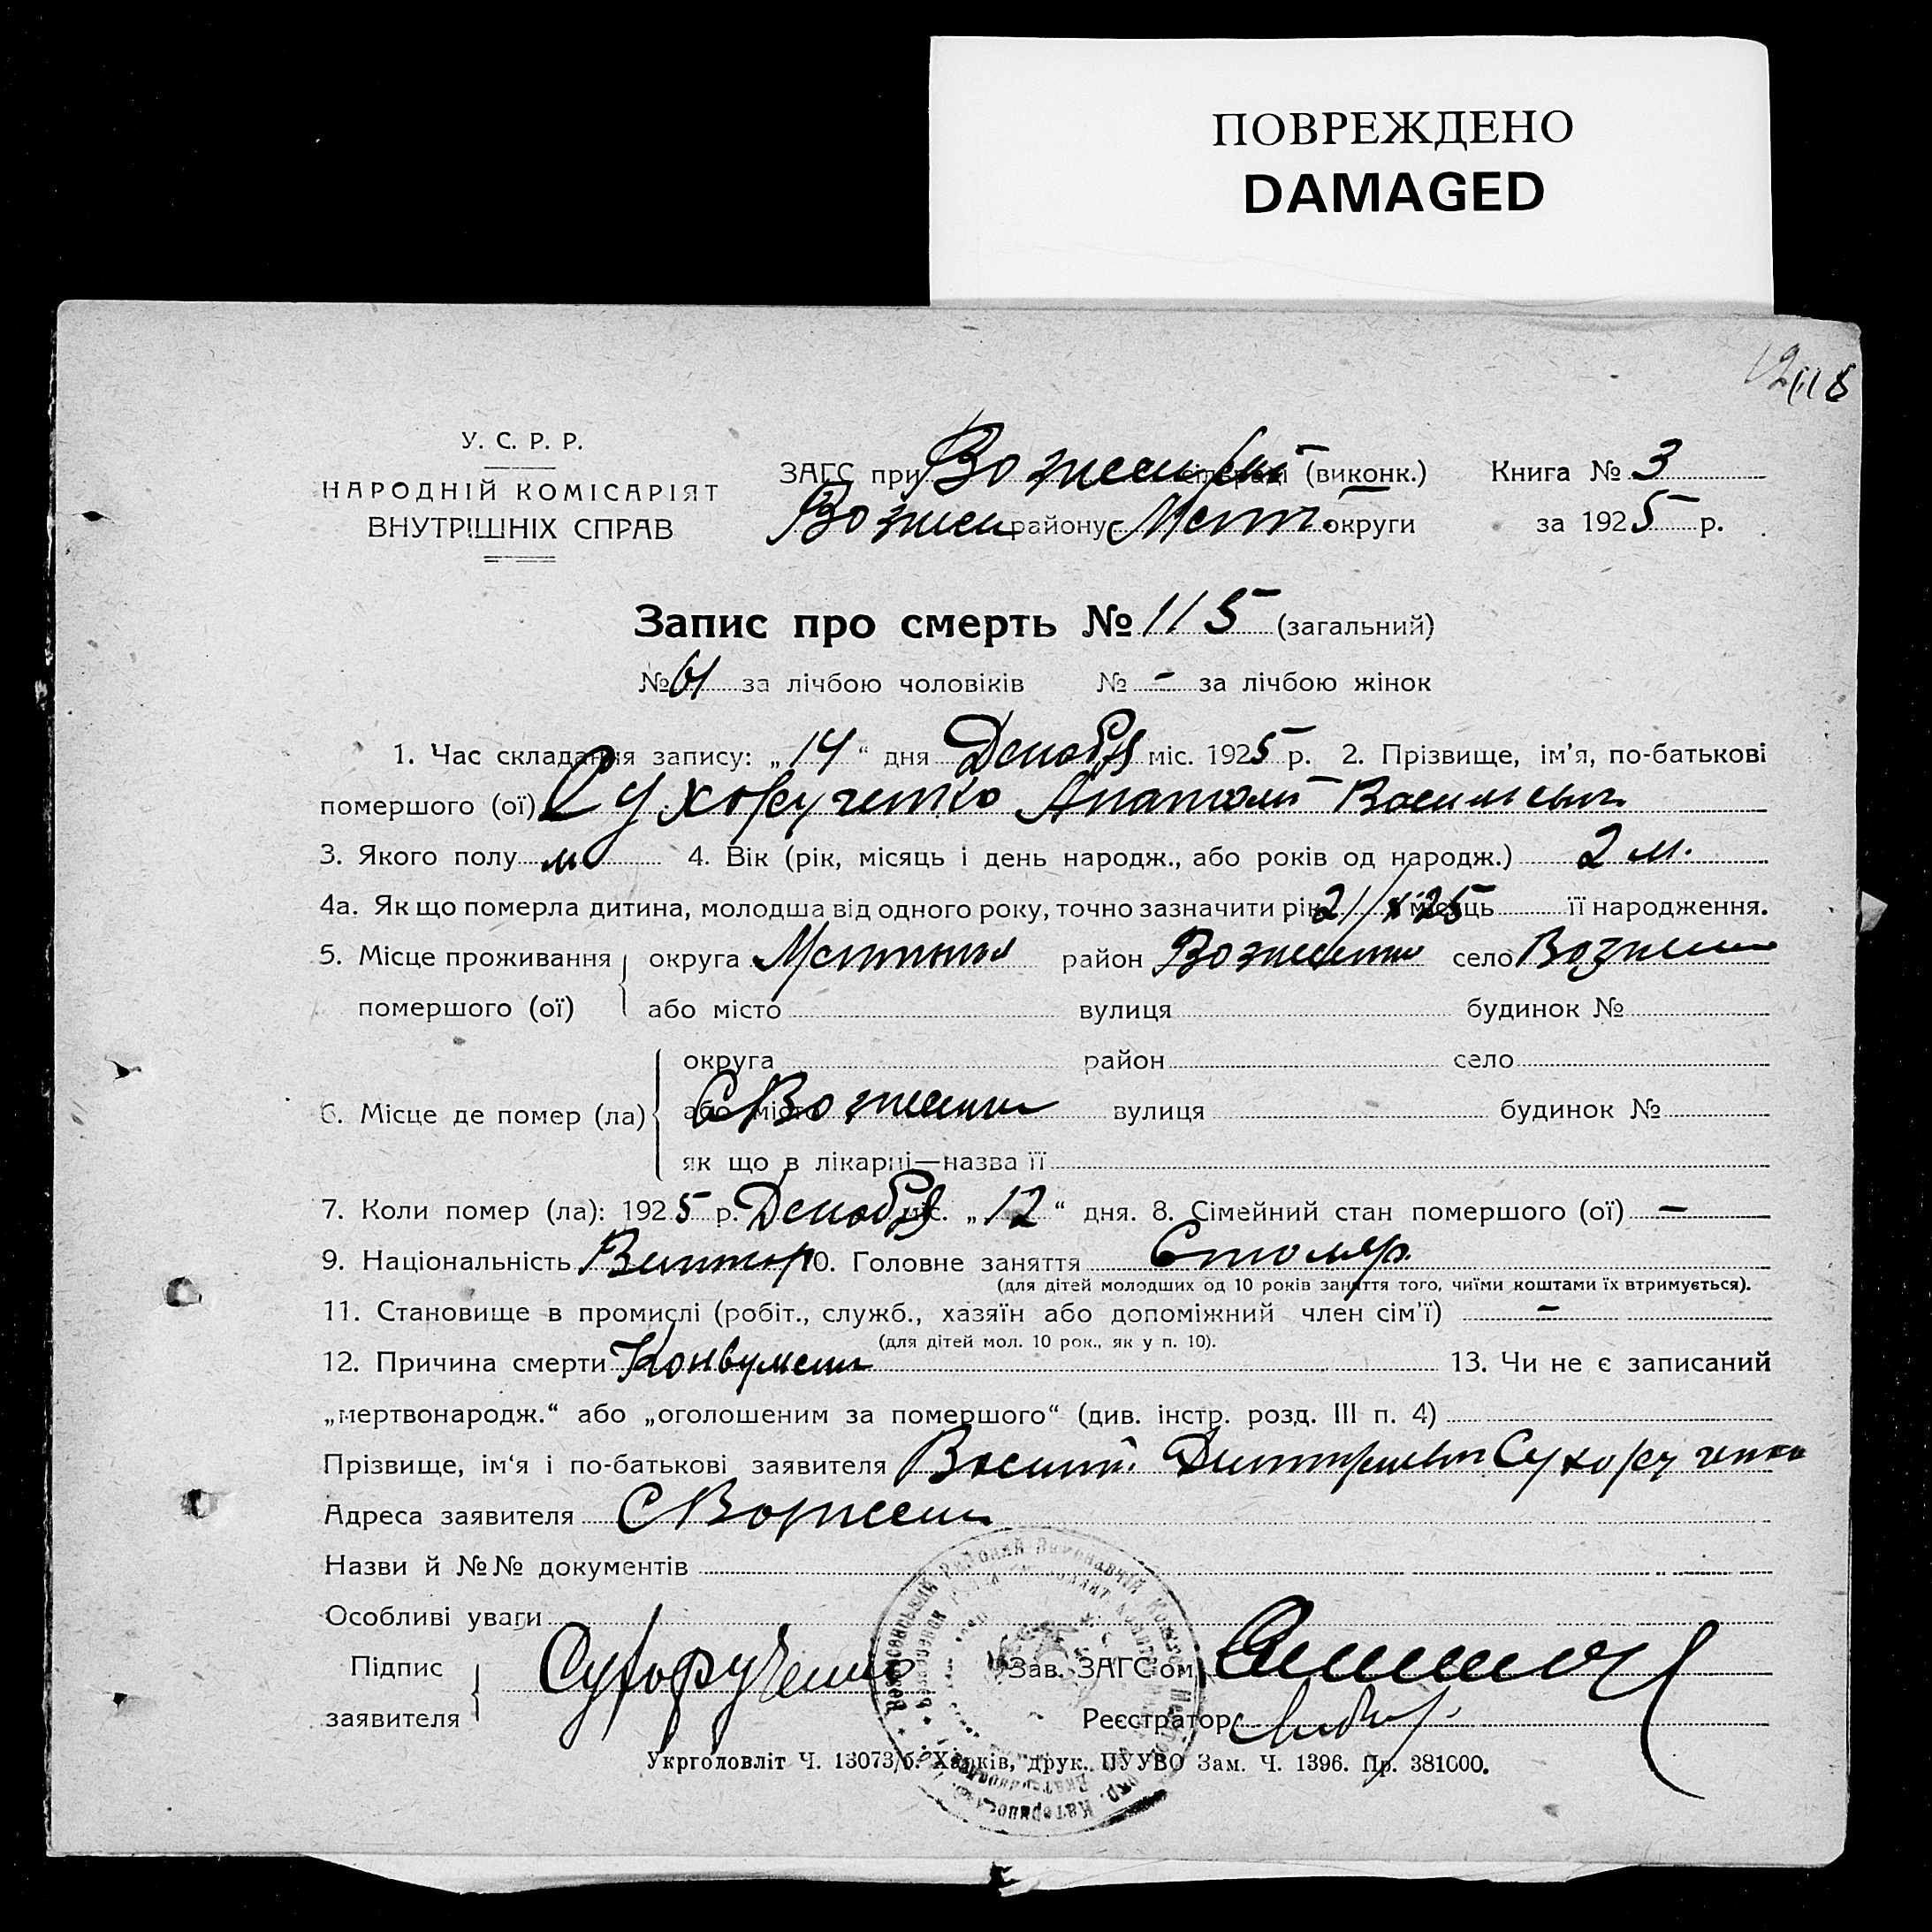 ПОВРЕЖДЕНО
DAMAGED
У. С. Р. Р.
НАРОДНІЙ КОМІСАРІЯТ
ВНУТРІШНІХ СПРАВ
ЗАГС при (виконк.) Книга № 3
району округи за 1925 р.
Запис про смерть № 115 (загальний)
№ 61 за лічбою чоловіків № - за лічбою жінок
1. Час складання запису: „14“ дня Декабря міс. 1925 р. 2. Прізвище, ім'я, по-батькові
помершого (ої) Сухорученко Анатолий Васильевич
3. Якого полу м 4. Вік (рік, місяць і день народж., або років од народж.) 2 м.
4а. Як що померла дитина, молодша від одного року, точно зазначити рік 21/X 25 місяць її народження.
5. Місце проживання округа район село
помершого (ої) або місто вулиця будинок №
округа район село
6. Місце де помер (ла) або місто вулиця будинок №
як що в лікарні—назва її
7. Коли помер (ла): 1925 р. Декабря міс. „12“ дня. 8. Сімейний стан помершого (ої) —
9. Національність 10. Головне заняття Столяр.
(для дітей молодших од 10 років заняття того, чиїми коштами їх втримується).
11. Становище в промислі (робіт., служб., хазяїн або допоміжний член сім'ї) —
(для дітей мол. 10 рок., як у п. 10).
12. Причина смерти 13. Чи не є записаний
„мертвонародж.“ або „оголошеним за помершого“ (див. інстр. розд. III п. 4)
Прізвище, ім'я і по-батькові заявителя Василий Дмитриевич Сухорученко
Адреса заявителя
Назви й №№ документів
Особливі уваги
Підпис Сухорученко Зав. ЗАГС'ом
заявителя Реєстратор
Укрголовліт Ч. 13073/б. Харків, друк. ПУУВО Зам. Ч. 1396. Пр. 381000.